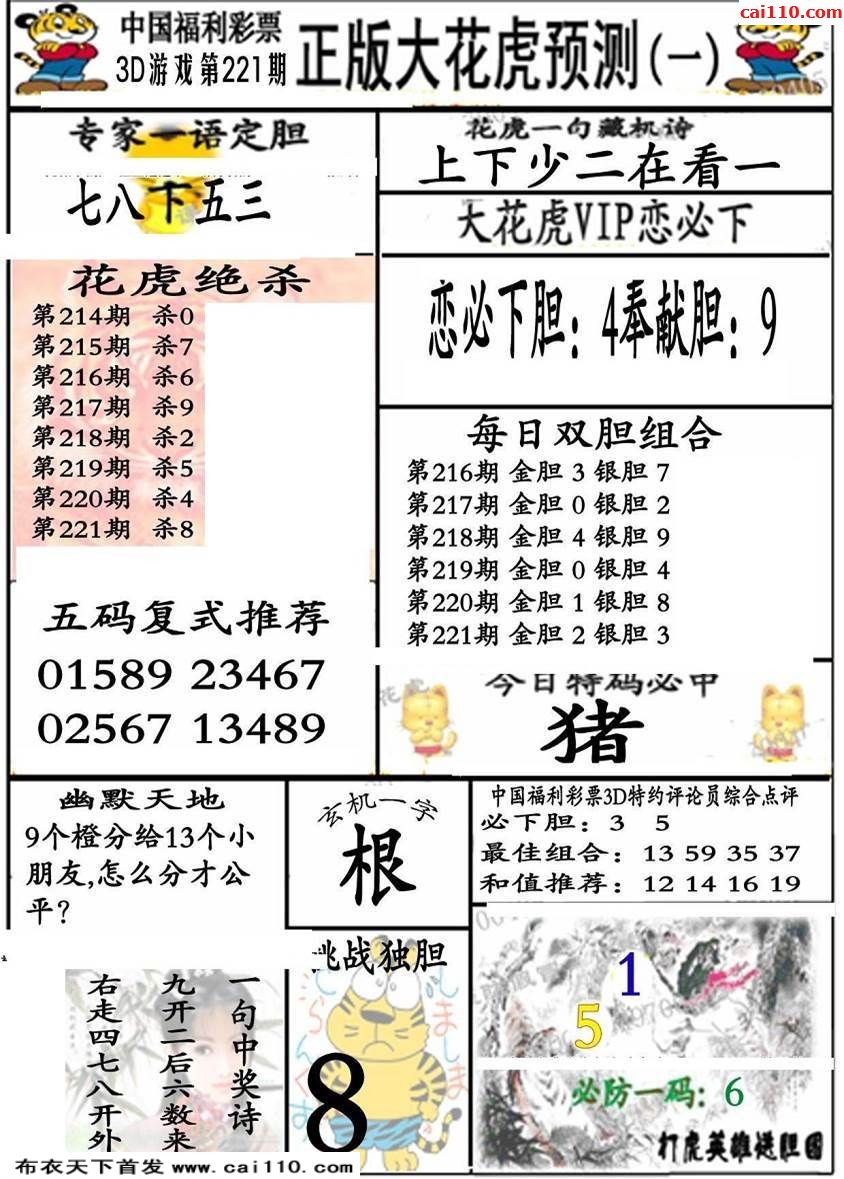 cai110.com
中国福利彩票
3D游戏第221期
正版大花虎预测(一)
专家一语定胆
七八下五三
花虎绝杀
第214期 杀0
第215期 杀7
第216期 杀6
第217期 杀9
第218期 杀2
第219期 杀5
第220期 杀4
第221期 杀8
五码复式推荐
01589 23467
02567 13489
花虎一句藏机诗
上下少二在看一
大花虎VIP恋必下
恋必下胆：4奉献胆：9
每日双胆组合
第216期 金胆 3 银胆 7
第217期 金胆 0 银胆 2
第218期 金胆 4 银胆 9
第219期 金胆 0 银胆 4
第220期 金胆 1 银胆 8
第221期 金胆 2 银胆 3
花虎
今日特码必中
猪
幽默天地
9个橙分给13个小
朋友,怎么分才公
平?
玄机一字
根
中国福利彩票3D特约评论员综合点评
必下胆：3 5
最佳组合：13 59 35 37
和值推荐：12 14 16 19
一句中奖诗
九开二后六数来
右走四七八开外
挑战独胆
8
1
5
必防一码：6
打虎英雄送胆图
布衣天下首发 www.cai110.com